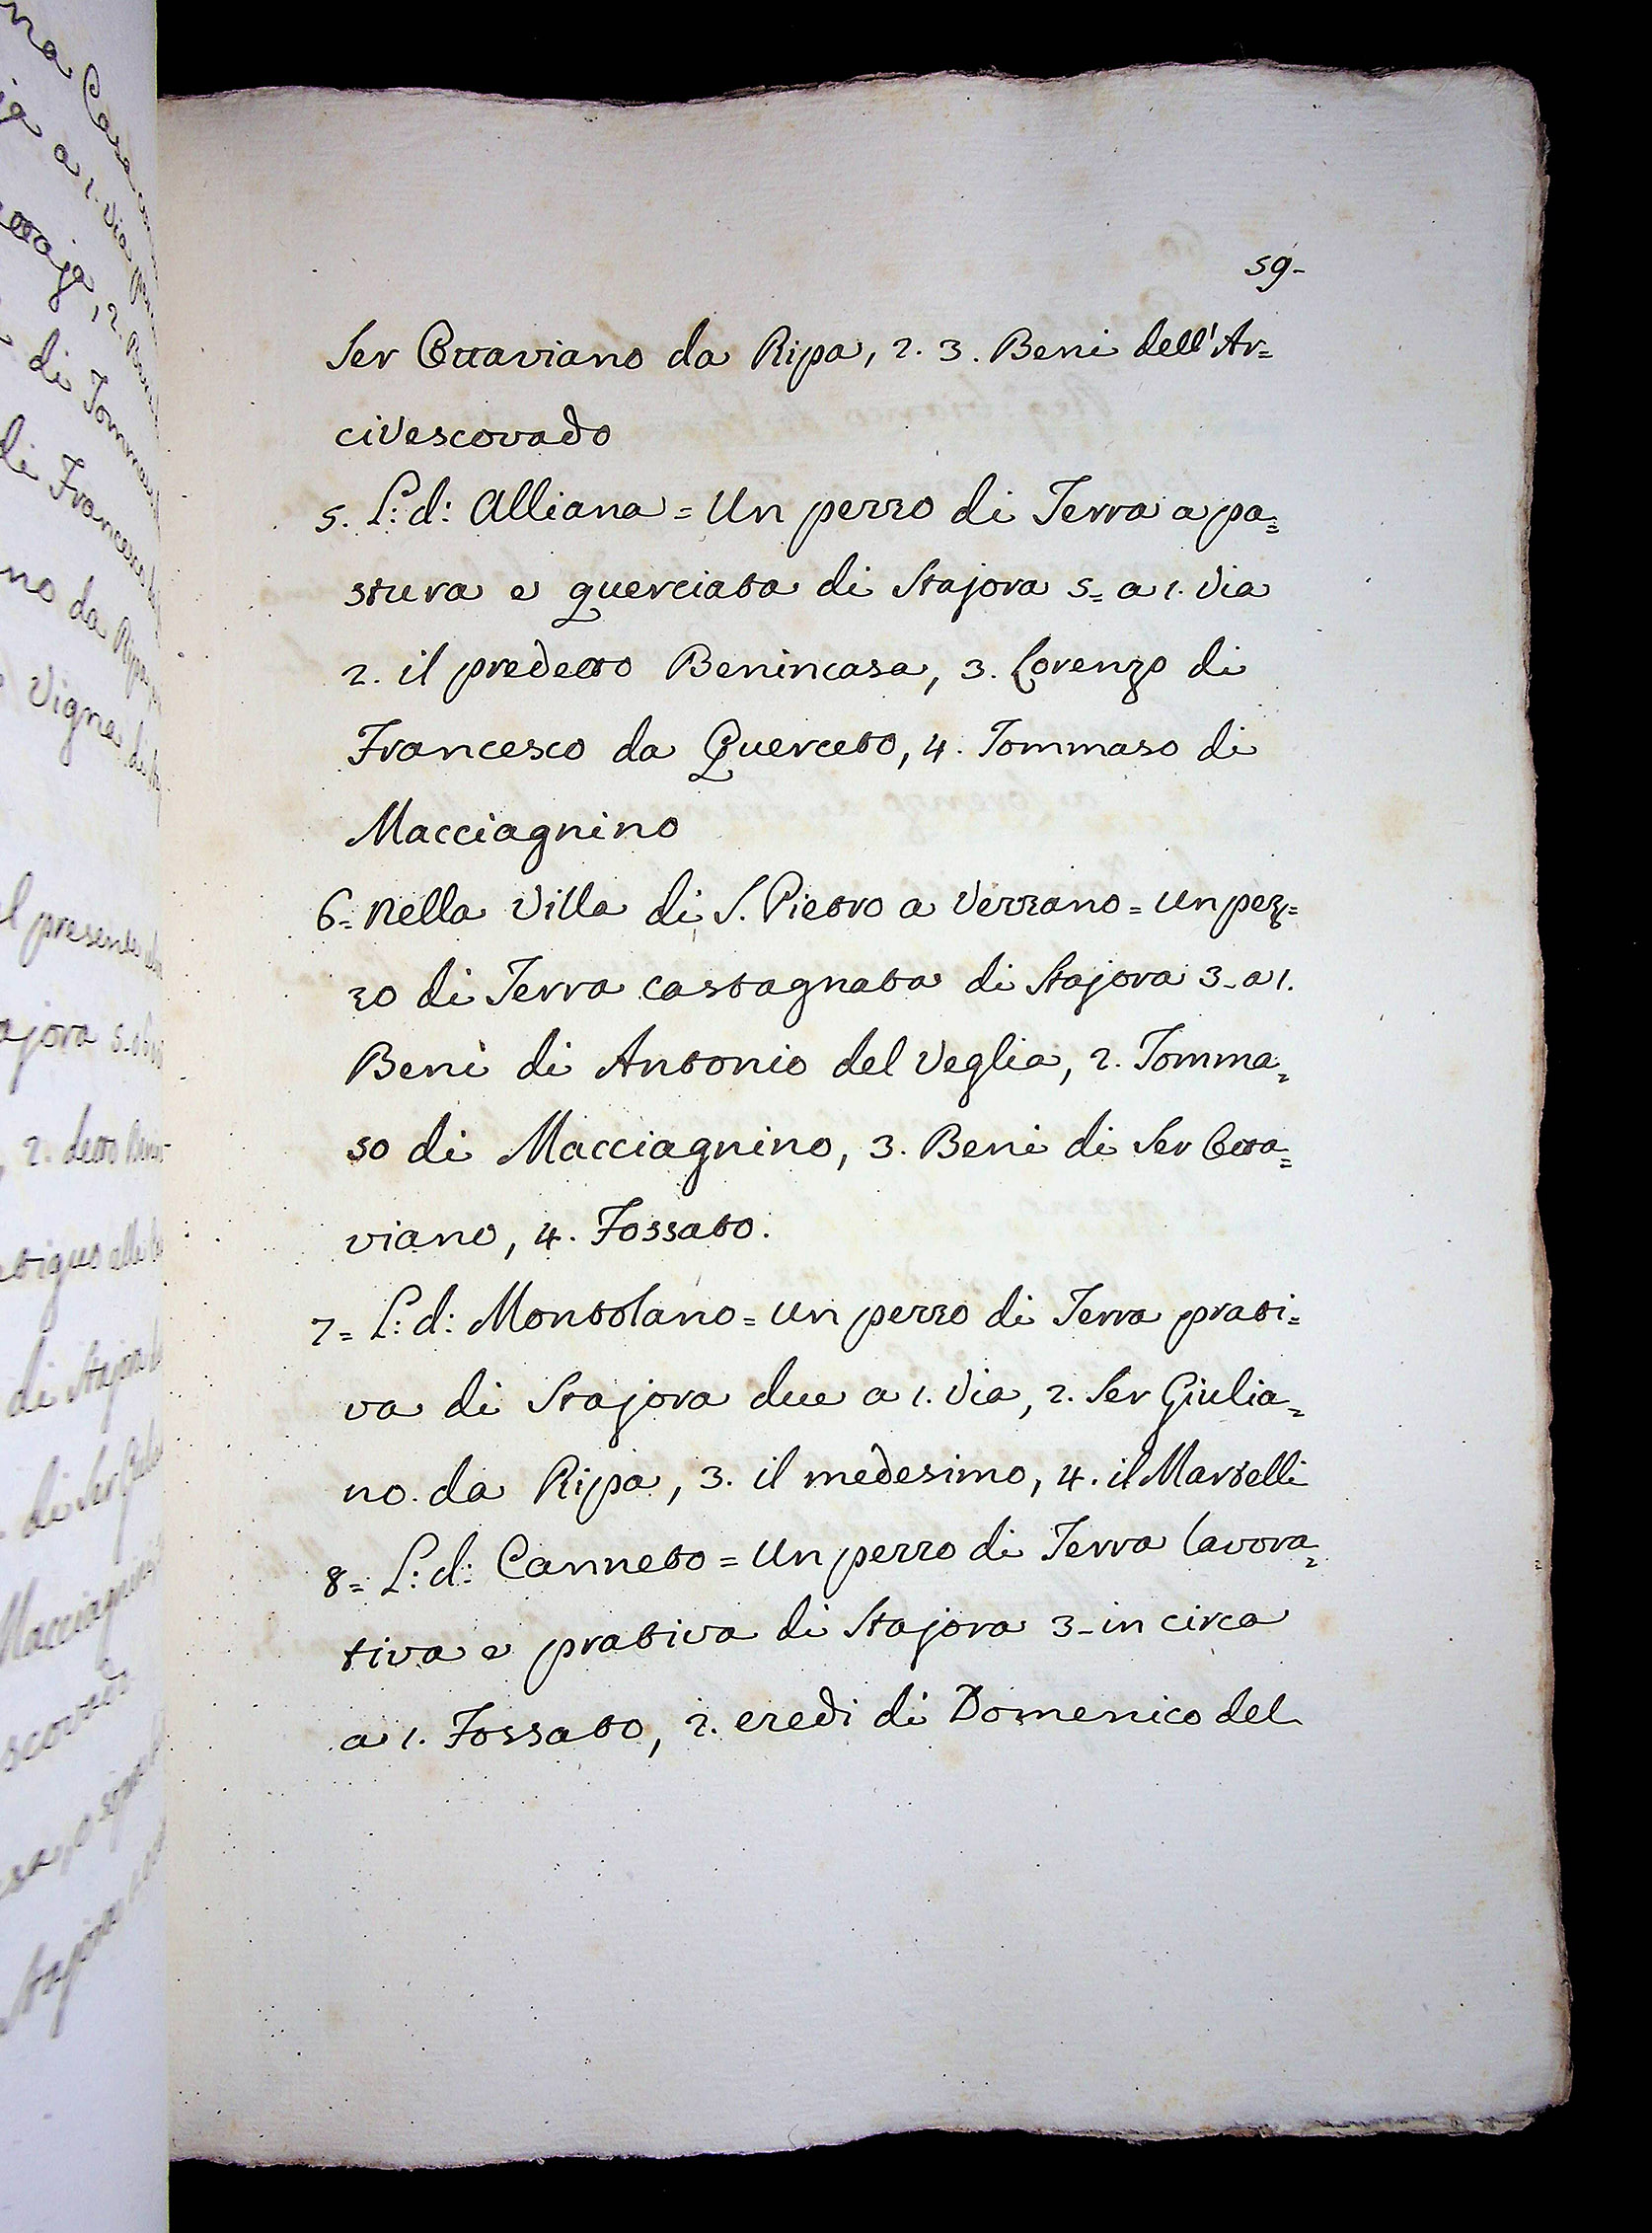 59-
Ser Ottaviano da Ripa, 2. 3. Beni dell'Ar=
civescovado
5. L:d: Alliana = Un pezzo di Terra a pa=
stura e querciata di Stajora 5= a 1. Via
2. il predetto Benincasa, 3. Lorenzo di
Francesco da Querceto, 4. Tommaso di
Macciagnino
6= Nella Villa di S. Pietro a Vezzano = Un pez=
zo di Terra castagnata di Stajora 3- a 1.
Beni di Antonio del Veglia, 2. Tomma=
so di Macciagnino, 3. Beni di Ser Otta=
viano, 4. Fossato.
7= L:d: Montolano = Un pezzo di Terra prati=
va di Stajora due a 1. Via, 2. Ser Giulia=
no da Ripa, 3. il medesimo, 4. il Martelli
8= L:d: Canneto = Un pezzo di Terra lavora=
tiva e prativa di Stajora 3- in circa
a 1. Fossato, 2. eredi di Domenico del